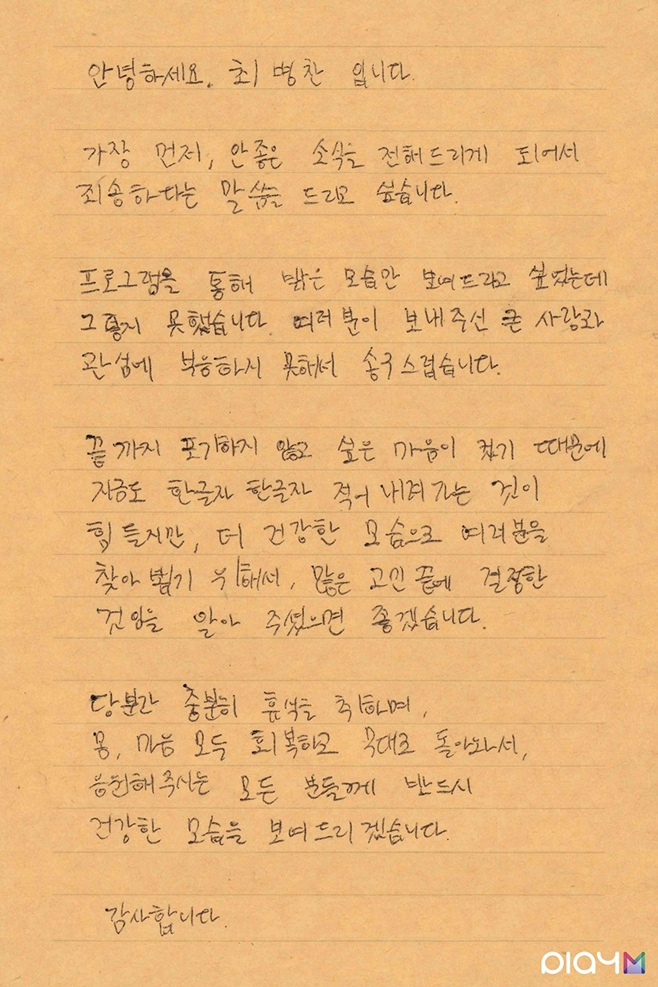 안녕하세요. 최병찬 입니다.
가장 먼저, 안좋은 소식을 전해드리게 되어서
죄송하다는 말씀을 드리고 싶습니다.
프로그램을 통해 밝은 모습만 보여드리고 싶었는데
그렇지 못했습니다. 여러분이 보내주신 큰 사랑과
관심에 보응하지 못해서 송구스럽습니다.
끝까지 포기하지 않고 싶은 마음이 컸기 때문에
지금도 한글자 한글자 적어 내려가는 것이
힘들지만, 더 건강한 모습으로 여러분을
찾아뵙기 위해서, 많은 고민끝에 결정한
것임을 알아 주셨으면 좋겠습니다.
당분간 충분히 휴식을 취하며,
몸, 마음 모두 회복하고 무대로 돌아와서,
응원해주시는 모든 분들께 반드시
건강한 모습을 보여드리겠습니다.
감사합니다.
PlayM